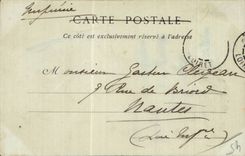 Imprimé
CARTE POSTALE
Ce côté est exclusivement réservé à l'adresse
Monsieur Gaston
9 Rue de Briord
Nantes
(Loire Infre)